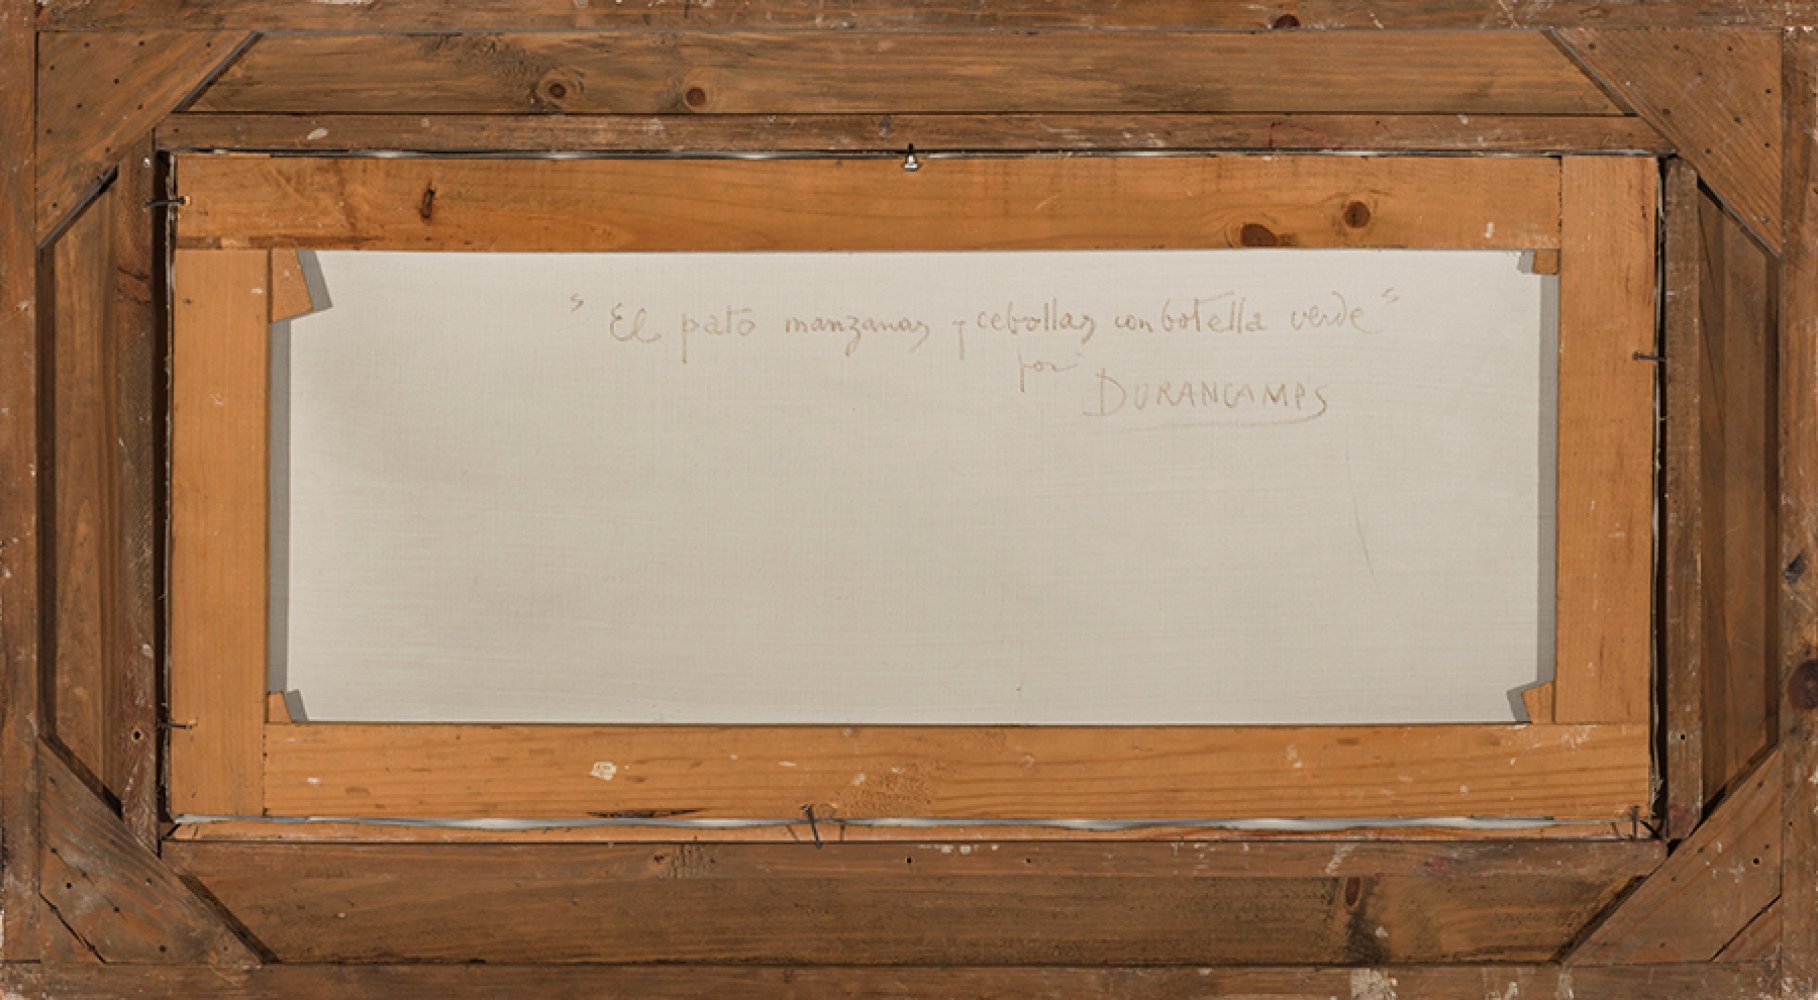 "El pato manzanas y cebollas con botella verde"
por
DURANCAMPS